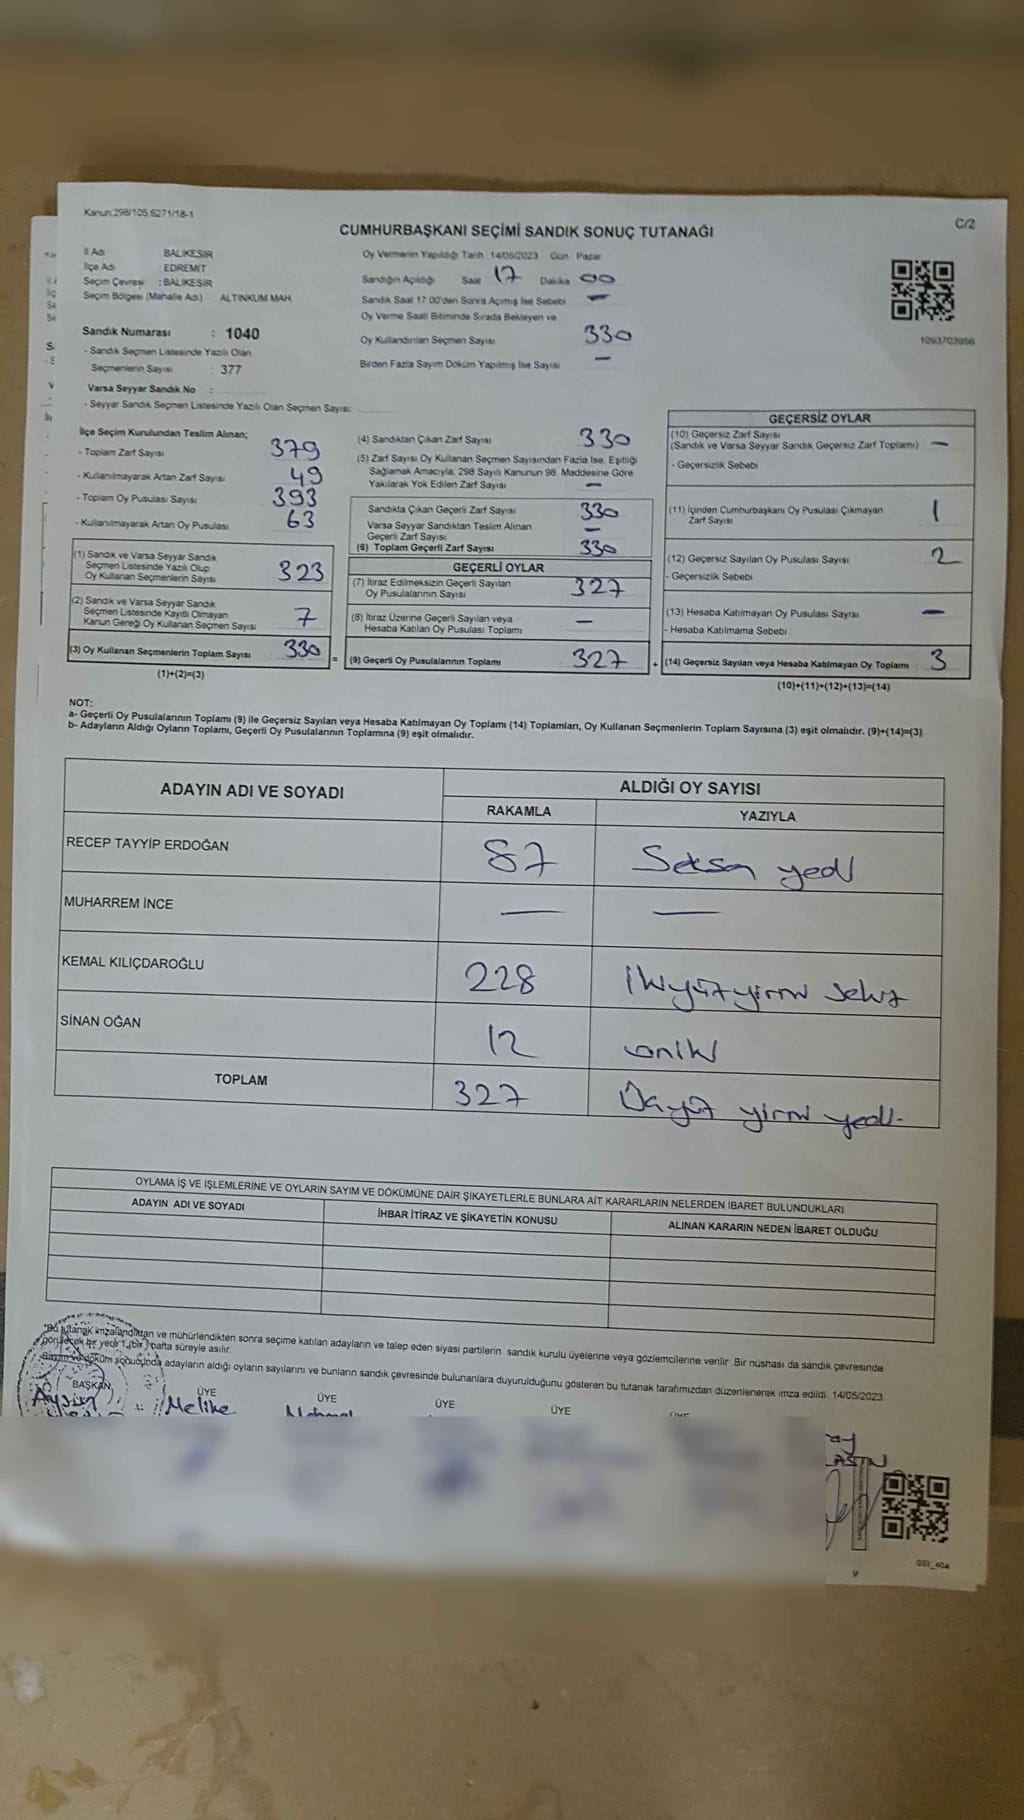 Kanun:298/105,6271/18-1
C/2
CUMHURBAŞKANI SEÇİMİ SANDIK SONUÇ TUTANAĞI
İl Adı BALIKESİR
İlçe Adı EDREMIT
Seçim Çevresi : BALIKESİR
Seçim Bölgesi (Mahalle Adı) ALTINKUM MAH.
Sandık Numarası : 1040
- Sandık Seçmen Listesinde Yazılı Olan
Seçmenlerin Sayısı : 377
Varsa Seyyar Sandık No :
- Seyyar Sandık Seçmen Listesinde Yazılı Olan Seçmen Sayısı:
Oy Vermenin Yapıldığı Tarih 14/05/2023 Gün Pazar
Sandığın Açıldığı Saat 17 Dakika 00
Sandık Saat 17:00'den Sonra Açımış İse Sebebi —
Oy Verme Saati Bitiminde Sırada Bekleyen ve
Oy Kullandırılan Seçmen Sayısı 330
Birden Fazla Sayım Döküm Yapılmış İse Sayısı —
1093703956
İlçe Seçim Kurulundan Teslim Alınan;
- Toplam Zarf Sayısı 379
- Kullanılmayarak Artan Zarf Sayısı 49
- Toplam Oy Pusulası Sayısı 393
- Kullanılmayarak Artan Oy Pusulası 63
(1) Sandık ve Varsa Seyyar Sandık
Seçmen Listesinde Yazılı Olup
Oy Kullanan Seçmenlerin Sayısı 323
(2) Sandık ve Varsa Seyyar Sandık
Seçmen Listesinde Kayıtlı Olmayan
Kanun Gereği Oy Kullanan Seçmen Sayısı 7
(3) Oy Kullanan Seçmenlerin Toplam Sayısı 330
(1)+(2)=(3)
(4) Sandıktan Çıkan Zarf Sayısı 330
(5) Zarf Sayısı Oy Kullanan Seçmen Sayısından Fazla İse, Eşitliği
Sağlamak Amacıyla, 298 Sayılı Kanunun 98. Maddesine Göre
Yakılarak Yok Edilen Zarf Sayısı —
Sandıkta Çıkan Geçerli Zarf Sayısı 330
Varsa Seyyar Sandıktan Teslim Alınan
Geçerli Zarf Sayısı —
(6) Toplam Geçerli Zarf Sayısı 330
GEÇERLİ OYLAR
(7) İtiraz Edilmeksizin Geçerli Sayılan
Oy Pusulalarının Sayısı 327
(8) İtiraz Üzerine Geçerli Sayılan veya
Hesaba Katılan Oy Pusulası Toplamı —
= (9) Geçerli Oy Pusulalarının Toplamı 327
GEÇERSİZ OYLAR
(10) Geçersiz Zarf Sayısı
(Sandık ve Varsa Seyyar Sandık Geçersiz Zarf Toplamı) —
- Geçersizlik Sebebi
(11) İçinden Cumhurbaşkanı Oy Pusulası Çıkmayan
Zarf Sayısı 1
(12) Geçersiz Sayılan Oy Pusulası Sayısı 2
- Geçersizlik Sebebi
(13) Hesaba Katılmayan Oy Pusulası Sayısı —
- Hesaba Katılmama Sebebi
+ (14) Geçersiz Sayılan veya Hesaba Katılmayan Oy Toplamı 3
(10)+(11)+(12)+(13)=(14)
NOT:
a- Geçerli Oy Pusulalarının Toplamı (9) ile Geçersiz Sayılan veya Hesaba Katılmayan Oy Toplamı (14) Toplamları, Oy Kullanan Seçmenlerin Toplam Sayısına (3) eşit olmalıdır. (9)+(14)=(3)
b- Adayların Aldığı Oyların Toplamı, Geçerli Oy Pusulalarının Toplamına (9) eşit olmalıdır.
ADAYIN ADI VE SOYADI ALDIĞI OY SAYISI
RAKAMLA YAZIYLA
RECEP TAYYİP ERDOĞAN 87 Seksen yedi
MUHARREM İNCE — —
KEMAL KILIÇDAROĞLU 228 İkiyüzyirmi sekiz
SİNAN OĞAN 12 oniki
TOPLAM 327 Üçyüz yirmi yedi.
OYLAMA İŞ VE İŞLEMLERİNE VE OYLARIN SAYIM VE DÖKÜMÜNE DAİR ŞİKAYETLERLE BUNLARA AİT KARARLARIN NELERDEN İBARET BULUNDUKLARI
ADAYIN ADI VE SOYADI İHBAR İTİRAZ VE ŞİKAYETİN KONUSU ALINAN KARARIN NEDEN İBARET OLDUĞU
"Bu tutanak imzalandıktan ve mühürlendikten sonra seçime katılan adayların ve talep eden siyasi partilerin sandık kurulu üyelerine veya gözlemcilerine verilir. Bir nüshası da sandık çevresinde
görülecek bir yere 1 (bir) hafta süreyle asılır.
Sayım ve döküm sonucunda adayların aldığı oyların sayılarını ve bunların sandık çevresinde bulunanlara duyurulduğunu gösteren bu tutanak tarafımızdan düzenlenerek imza edildi. 14/05/2023
BAŞKAN ÜYE ÜYE ÜYE ÜYE
Melike